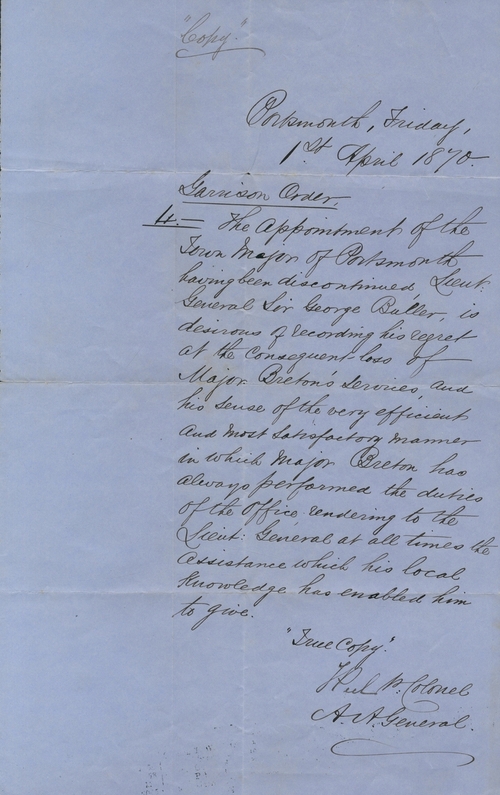 "Copy."
Portsmouth, Friday,
1st April 1870.
Garrison Order.
4.— The Appointment of the
Town Major of Portsmouth
having been discontinued, Lieut:
General Sir George Buller, is
desirous of recording his regret
at the consequent loss of
Major Breton's services, and
his sense of the very efficient
and most satisfactory manner
in which Major Breton has
always performed the duties
of the Office, rendering to the
Lieut: General at all times the
assistance which his local
knowledge has enabled him
to give.
"True Copy."
Colonel
A. A. General.